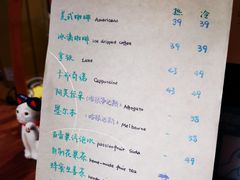 热 冷
美式咖啡 Americano 39 39
冰滴咖啡 ice dripped coffee 39
拿铁 Latte 43 49
卡布奇诺 Cappuccino 43 49
阿芙佳朵 Affogato
墨尔本 Melbourne 58
百香果汽泡水 passionfruit Soda 58
自制花果茶 home-made fruit tea
蜂蜜生姜茶